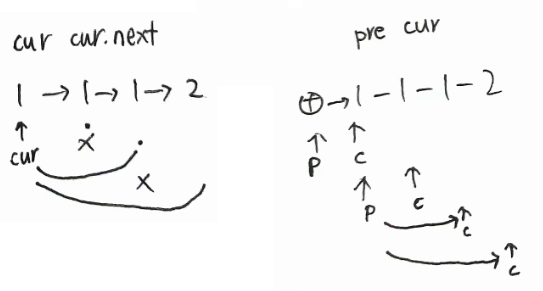 cur cur.next
1 → 1 → 1 → 2
↑
cur
x
x
pre cur
⊕ → 1 - 1 - 1 - 2
↑ ↑
P c
↑ ↑
P c
↑
c
↑
c